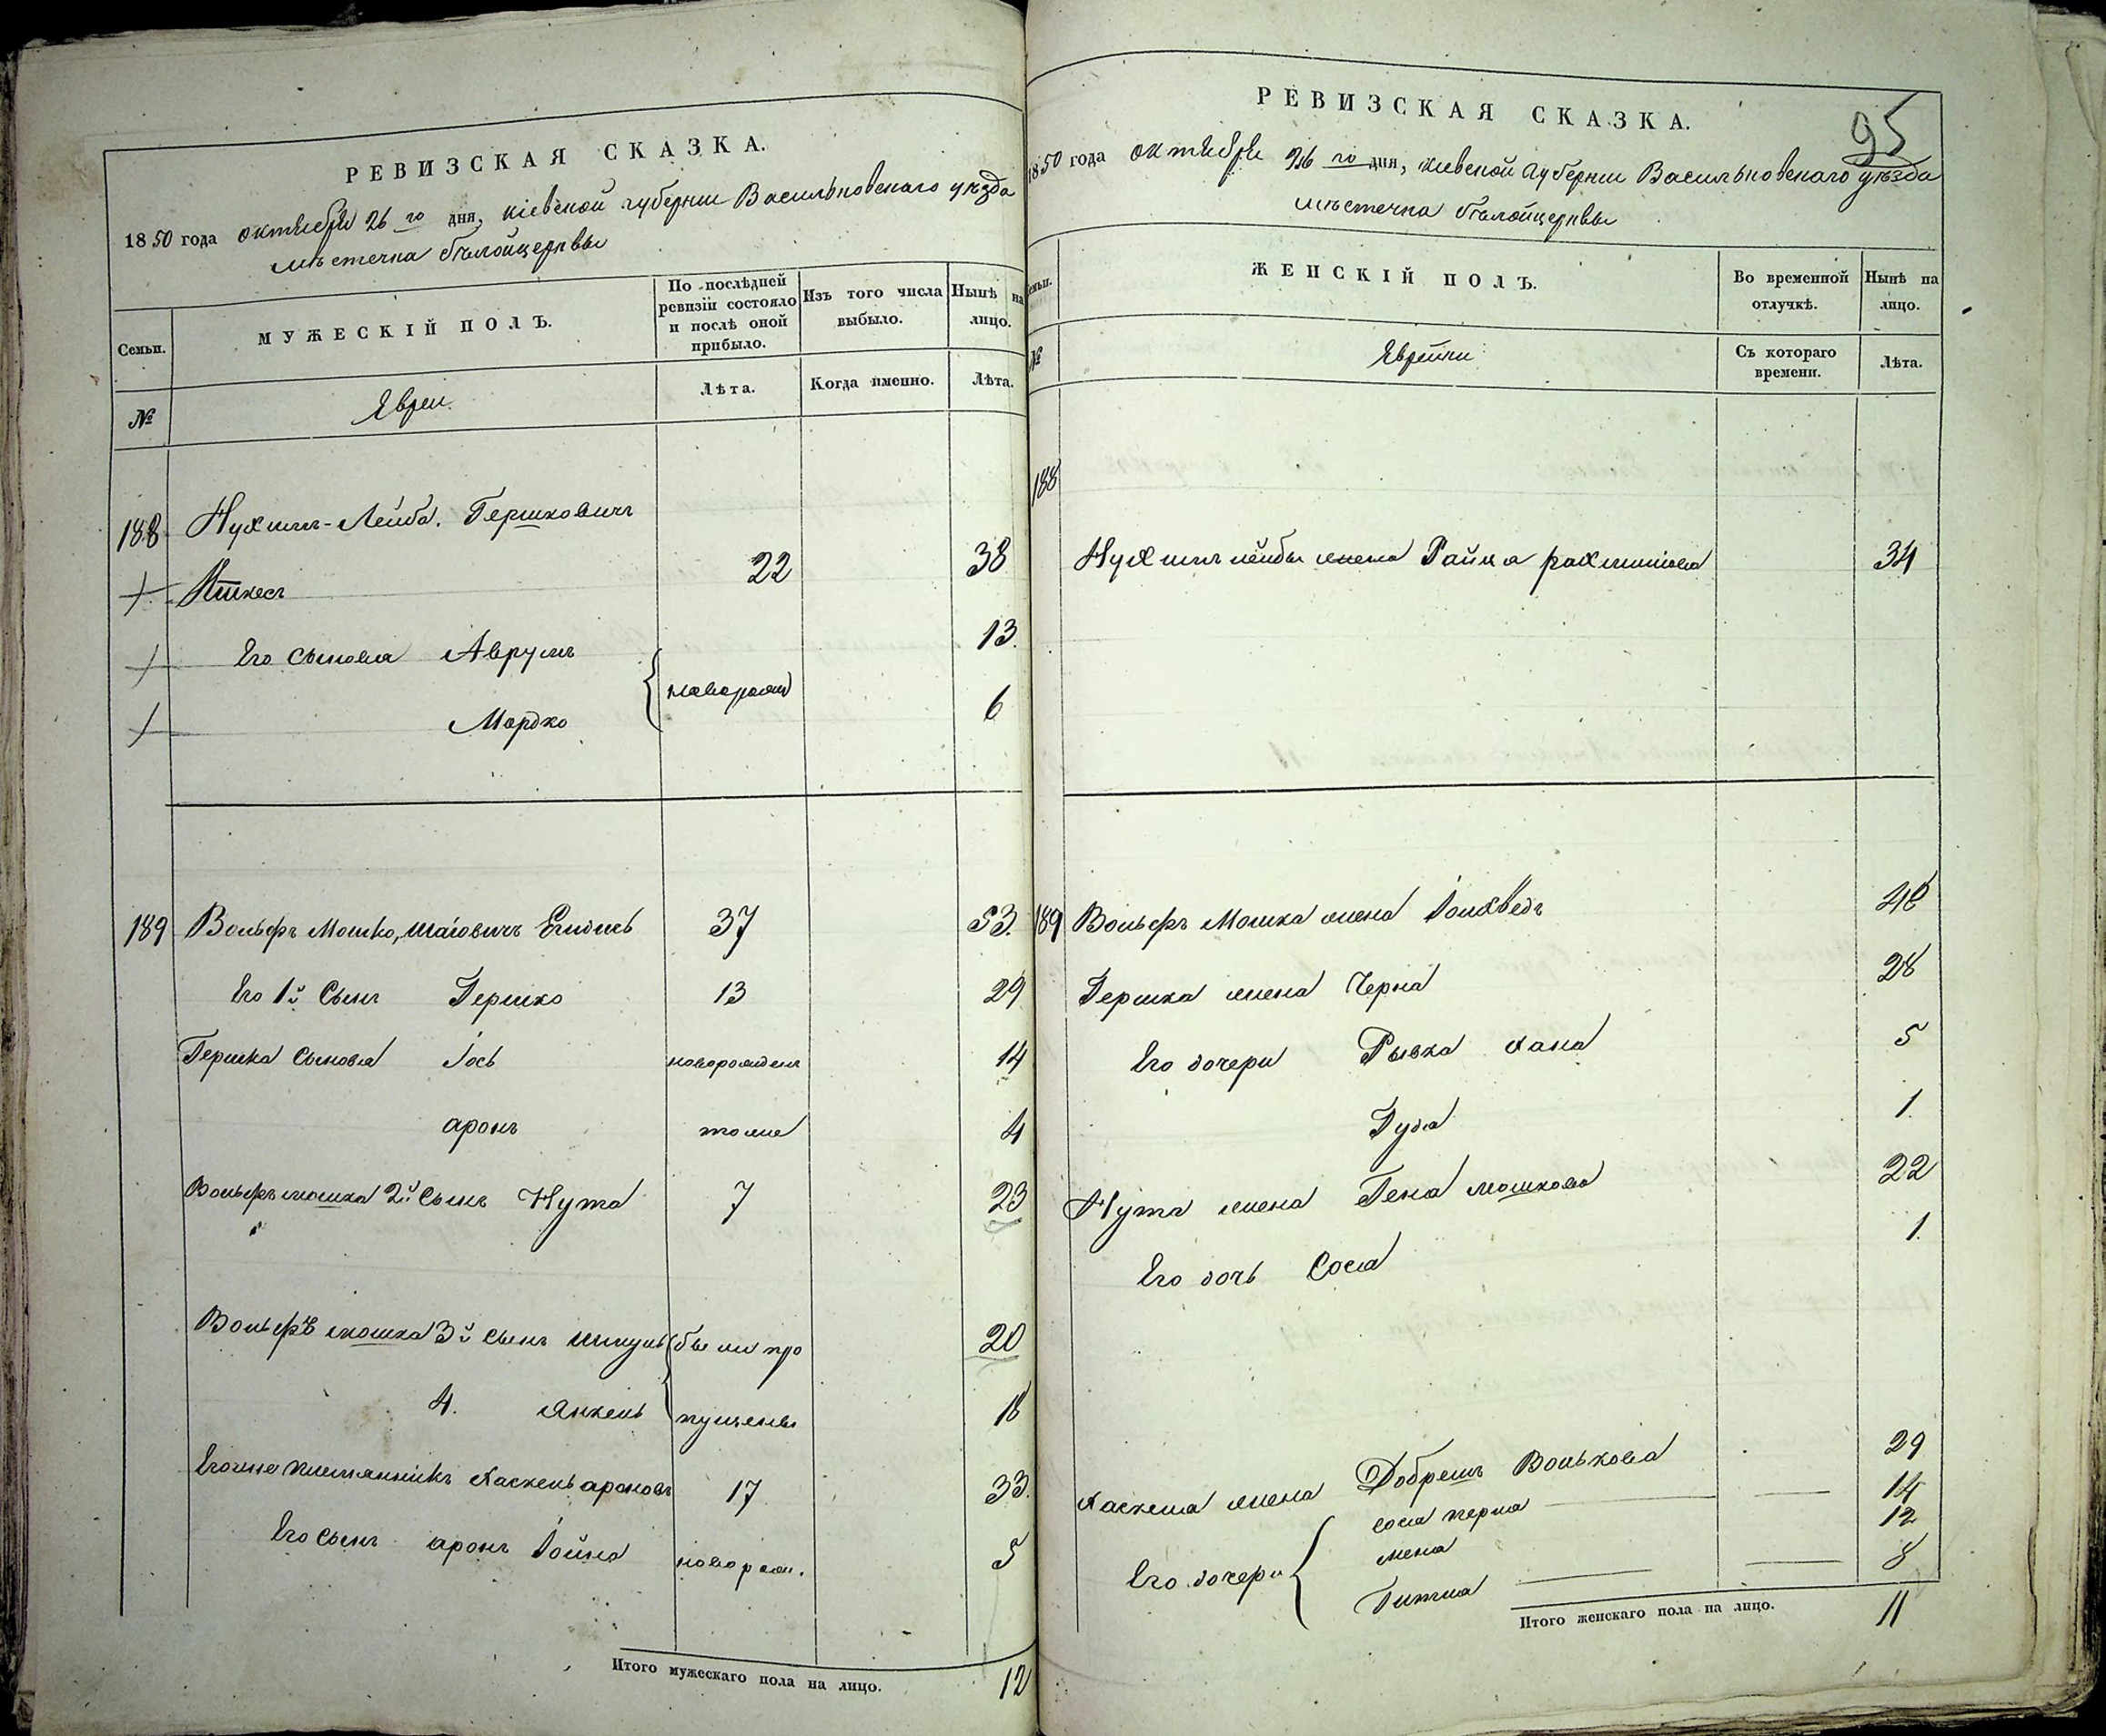 РЕВИЗСКАЯ СКАЗКА.
1850 года октября 26 го дня, кіевской губерніи Васильковскаго уезда
местечка белойцеркви
Семьи.
МУЖЕСКІЙ ПОЛЪ.
По послѣдней ревизіи состояло и послѣ оной прибыло.
Изъ того числа выбыло.
Нынѣ на лицо.
№
Евреи.
Лѣта.
Когда именно.
Лѣта.
188 Нухимъ-Лейба. Гершковичъ
22 38
Его сыновья Аврумъ 13.
новорожд
Мордко 6
189 Вольфъ Мошко, 37 53.
Его 1й Сынъ Гершко 13 29
Гершка Сыновья Іось новорожден 14
аронъ тоже 4
Вольфъ мошка 2й Сынъ Нута 7 23
Вольфъ мошка 3й сынъ были про 20
4. Янкель пущены 18
Егоже племянникъ Хаскель ароновъ 17 33.
Его сынъ аронъ Іойна новорож. 5
Итого мужескаго пола на лицо. 12
95
РЕВИЗСКАЯ СКАЗКА.
1850 года октября 26 го дня, кіевской губерніи Васильковскаго уезда
местечка белойцеркви
Семьи.
ЖЕНСКІЙ ПОЛЪ.
Во временной отлучкѣ.
Нынѣ на лицо.
№
Еврейки
Съ котораго времени.
Лѣта.
188
Нухимъ лейбы жена Райца рахмилова 34
189 Вольфъ Мошка жена 48
Гершка жена Черна 28
Его дочери Рывка хана 5
Гуда 1.
Нута жена Гена мошкова 22
Его дочь Сося 1.
Хаскеля жена Добрешъ Волькова 29
сося перла 14
Его дочери мена 12
Гитля 8
Итого женскаго пола на лицо. 11